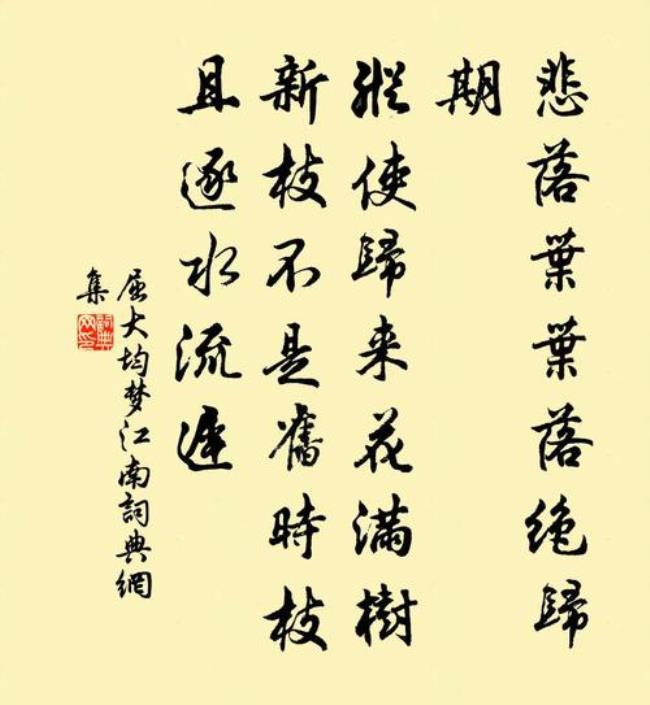 悲落葉葉落绝歸
期
縱使歸来花满樹
新枝不是舊時枝
且逐水流遲
屈大均梦江南詞典網
集
詞典網印